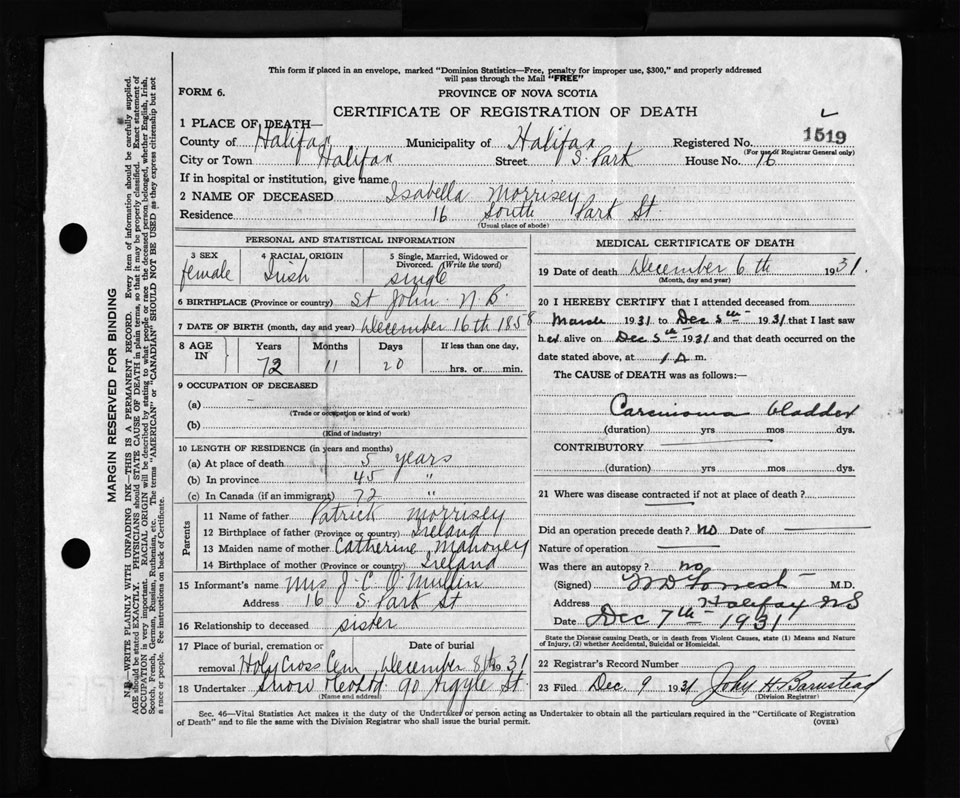 This form if placed in an envelope, marked "Dominion Statistics—Free, penalty for improper use, $300," and properly addressed
will pass through the Mail "FREE"
FORM 6.
PROVINCE OF NOVA SCOTIA
CERTIFICATE OF REGISTRATION OF DEATH
1 PLACE OF DEATH—
County of Halifax Municipality of Halifax Registered No. 1519
(For use of Registrar General only)
City or Town Halifax Street S. Park House No. 16
If in hospital or institution, give name
2 NAME OF DECEASED Isabella Morrisey
Residence 16 South Park St.
(Usual place of abode)
PERSONAL AND STATISTICAL INFORMATION
3 SEX 4 RACIAL ORIGIN 5 Single, Married, Widowed or
Divorced. (Write the word)
female Irish single
6 BIRTHPLACE (Province or country) St John N.B.
7 DATE OF BIRTH (month, day and year) December 16th 1858
8 AGE IN Years Months Days If less than one day,
72 11 20 hrs. or min.
9 OCCUPATION OF DECEASED
(a) –
(Trade or occupation or kind of work)
(b)
(Kind of industry)
10 LENGTH OF RESIDENCE (in years and months)
(a) At place of death 5 years
(b) In province 45 "
(c) In Canada (if an immigrant) 72 "
Parents
11 Name of father Patrick Morrisey
12 Birthplace of father (Province or country) Ireland
13 Maiden name of mother Catherine Mahoney
14 Birthplace of mother (Province or country) Ireland
15 Informant's name Mrs J. C. O'Mullin
Address 16 S. Park St
16 Relationship to deceased sister
17 Place of burial, cremation or Date of burial
removal Holy Cross Cem December 8th 1931
18 Undertaker Snow & Co Ltd 90 Argyle St.
(Name and address)
MEDICAL CERTIFICATE OF DEATH
19 Date of death December 6th 1931.
(Month, day and year)
20 I HEREBY CERTIFY that I attended deceased from
March 1931 to Dec 5th 1931 that I last saw
her alive on Dec 5th 1931 and that death occurred on the
date stated above, at 1 A m.
The CAUSE OF DEATH was as follows:—
Carcinoma bladder
(duration) yrs mos dys.
CONTRIBUTORY
(duration) yrs mos dys.
21 Where was disease contracted if not at place of death?
Did an operation precede death? No Date of
Nature of operation
Was there an autopsy? No
(Signed) W D Forrest M.D.
Address Halifax NS
Date Dec 7th 1931
State the Disease causing Death, or in death from Violent Causes, state (1) Means and Nature
of Injury, (2) whether Accidental, Suicidal or Homicidal.
22 Registrar's Record Number
23 Filed Dec. 9 1931 John H Barnstead
(Division Registrar)
Sec. 46—Vital Statistics Act makes it the duty of the Undertaker or person acting as Undertaker to obtain all the particulars required in the "Certificate of Registration
of Death" and to file the same with the Division Registrar who shall issue the burial permit.
(OVER)
MARGIN RESERVED FOR BINDING
N.B.—WRITE PLAINLY WITH UNFADING INK—THIS IS A PERMANENT RECORD. Every item of information should be carefully supplied.
AGE should be stated EXACTLY. PHYSICIANS should STATE CAUSE OF DEATH in plain terms, so that it may be properly classified. Exact statement of
OCCUPATION is very important. RACIAL ORIGIN will be described by stating to what people or race the deceased person belonged, whether English, Irish,
Scotch, French, German, Russian, Ruthenian, etc. The terms "AMERICAN" or "CANADIAN" SHOULD NOT BE USED as they express citizenship but not
a race or people. See instructions on back of Certificate.